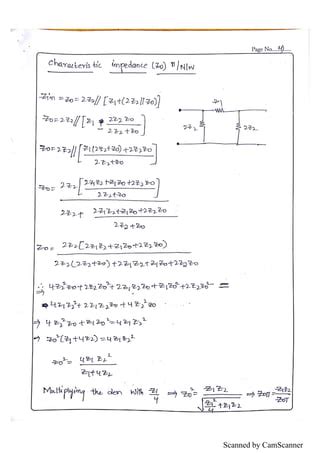 Page No. 4
Characteristic impedance (Z0) π/N/w
Zin = Z0 = 2Z2 // [Z1+(2Z2 // Z0)]
Z1
2Z2
2Z2
Z0 = 2Z2 // [Z1 + 2Z2 Z0 / 2Z2+Z0]
Z0 = 2Z2 // [Z1(2Z2+Z0)+2Z2Z0 / 2Z2+Z0]
Z0 = 2Z2 [2Z1Z2+Z1Z0+2Z2Z0 / 2Z2+Z0]
2Z2 + 2Z1Z2+Z1Z0+2Z2Z0 / 2Z2+Z0
Z0 = 2Z2 [2Z1Z2+Z1Z0+2Z2Z0)
2Z2(2Z2+Z0)+2Z1Z2+Z1Z0+2Z2Z0
∴ 4Z2²Z0+2Z2Z0²+2Z1Z2Z0+Z1Z0²+2Z2Z0² =
4Z1Z2²+2Z1Z2Z0+4Z2²Z0
⇒ 4Z2Z0²+Z1Z0² = 4Z1Z2²
⇒ Z0²(Z1+4Z2) = 4Z1Z2²
Z0² = 4Z1Z2² / Z1+4Z2
Multiplying the den with Z1/4 ⇒ Z0² = Z1Z2 / √Z1²/4+Z1Z2 ⇒ Z0π = Z1Z2 / Z0T
Scanned by CamScanner